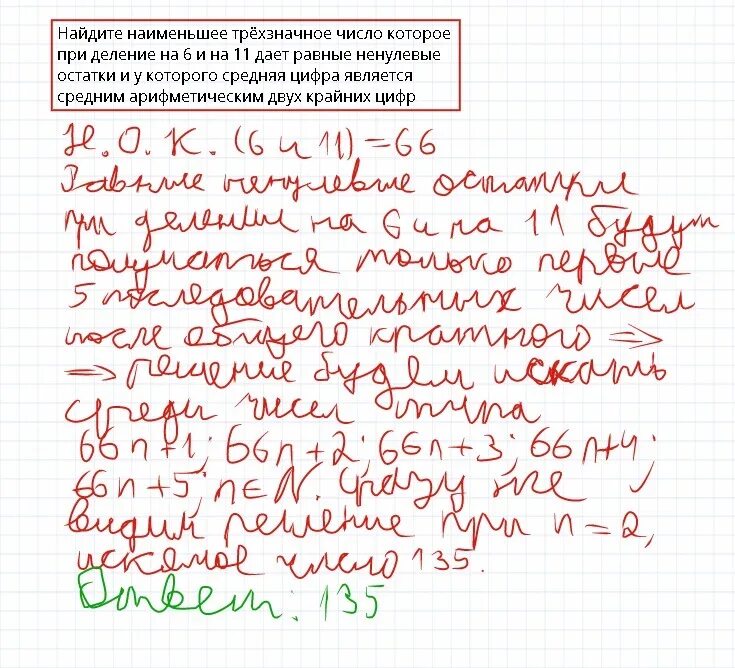 Найдите наименьшее трёхзначное число которое
при деление на 6 и на 11 дает равные ненулевые
остатки и у которого средняя цифра является
средним арифметическим двух крайних цифр
Н.О.К. (6 и 11) = 66
Равные ненулевые остатки
при делении на 6 и на 11 будут
получаться только первые
5 последовательных чисел
после общего кратного =>
=> решение будем искать
среди чисел типа
66n+1; 66n+2; 66n+3; 66n+4;
66n+5; n∈N. Сразу же
видим решение при n=2,
искомое число 135.
Ответ: 135